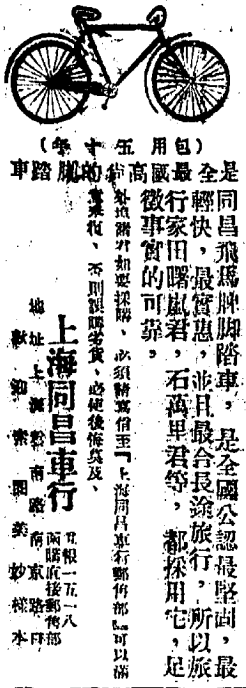 （包用五十年）
是全國最高尚的脚踏車
同昌飛馬牌脚踏車，是全國公認最堅固，最
輕快，最實惠，並且最合長途旅行，所以旅
行家田曙嵐君，石萬里君等，都採用它，足
徵事實的可靠，
外埠諸君如要採購，必須請寫信至『上海同昌車行郵售部』可以滿
意乘夜、否則誤購劣貨、必使後悔莫及、
上海同昌車行
地址上海南路南京路口
歡迎索圖美妙樣本
函購直接郵售部